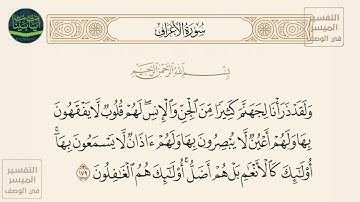 سورة الأعراف
التفسير
الميسر
في الوصف
بِسْمِ اللَّهِ الرَّحْمَٰنِ الرَّحِيمِ
وَلَقَدْ ذَرَأْنَا لِجَهَنَّمَ كَثِيرًا مِّنَ ٱلْجِنِّ وَٱلْإِنسِ ۖ لَهُمْ قُلُوبٌ لَّا يَفْقَهُونَ
بِهَا وَلَهُمْ أَعْيُنٌ لَّا يُبْصِرُونَ بِهَا وَلَهُمْ ءَاذَانٌ لَّا يَسْمَعُونَ بِهَآ ۚ
أُو۟لَٰٓئِكَ كَٱلْأَنْعَٰمِ بَلْ هُمْ أَضَلُّ ۚ أُو۟لَٰٓئِكَ هُمُ ٱلْغَٰفِلُونَ ١٧٩
التفسير
الميسر
في الوصف